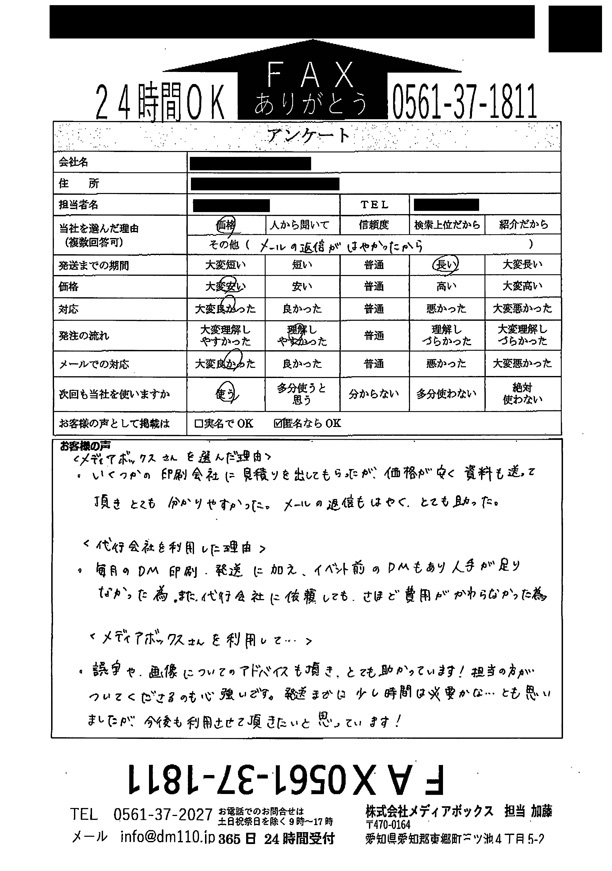 FAX
ありがとう
24時間OK
0561-37-1811
アンケート
会社名
住 所
担当者名 TEL
当社を選んだ理由 (複数回答可) 価格 人から聞いて 信頼度 検索上位だから 紹介だから
その他 ( メールの返信がはやかったから )
発送までの期間 大変短い 短い 普通 長い 大変長い
価格 大変安い 安い 普通 高い 大変高い
対応 大変良かった 良かった 普通 悪かった 大変悪かった
発注の流れ 大変理解しやすかった 理解しやすかった 普通 理解しづらかった 大変理解しづらかった
メールでの対応 大変良かった 良かった 普通 悪かった 大変悪かった
次回も当社を使いますか 使う 多分使うと思う 分からない 多分使わない 絶対使わない
お客様の声として掲載は □実名でOK ☑匿名ならOK
お客様の声
<メディアボックスさんを選んだ理由>
・いくつかの印刷会社に見積りを出してもらったが、価格が安く資料も送って
頂きとても分かりやすかった。メールの返信もはやく、とても助った。
<代行会社を利用した理由>
・毎月のDM印刷.発送に加え、イベント前のDMもあり人手が足り
なかった為。また、代行会社に依頼しても、さほど費用がかわらなかった為
<メディアボックスさんを利用して…>
・誤字や、画像についてのアドバイスも頂き、とても助かっています!担当の方が
ついてくださるのも心強いです。発送までに少し時間は必要かな…とも思い
ましたが、今後も利用させて頂きたいと思っています!
FAX0561-37-1811
TEL 0561-37-2027 お電話でのお問合せは
土日祝祭日を除く9時～17時
メール info@dm110.jp 365日 24時間受付
株式会社メディアボックス 担当 加藤
〒470-0164
愛知県愛知郡東郷町三ツ池4丁目5-2